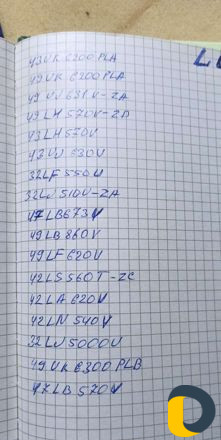 43UK6200PLA
49UK6200PLA
49UJ631V-ZA
49LH570V-ZD
43LH570V
43UJ630V
32LF550U
32LJ510U-ZA
47LB673V
49LB860V
49LF620V
42LS560T-ZC
42LA620V
42LN540V
32LJ5000U
49UK6300PLB
47LB570V